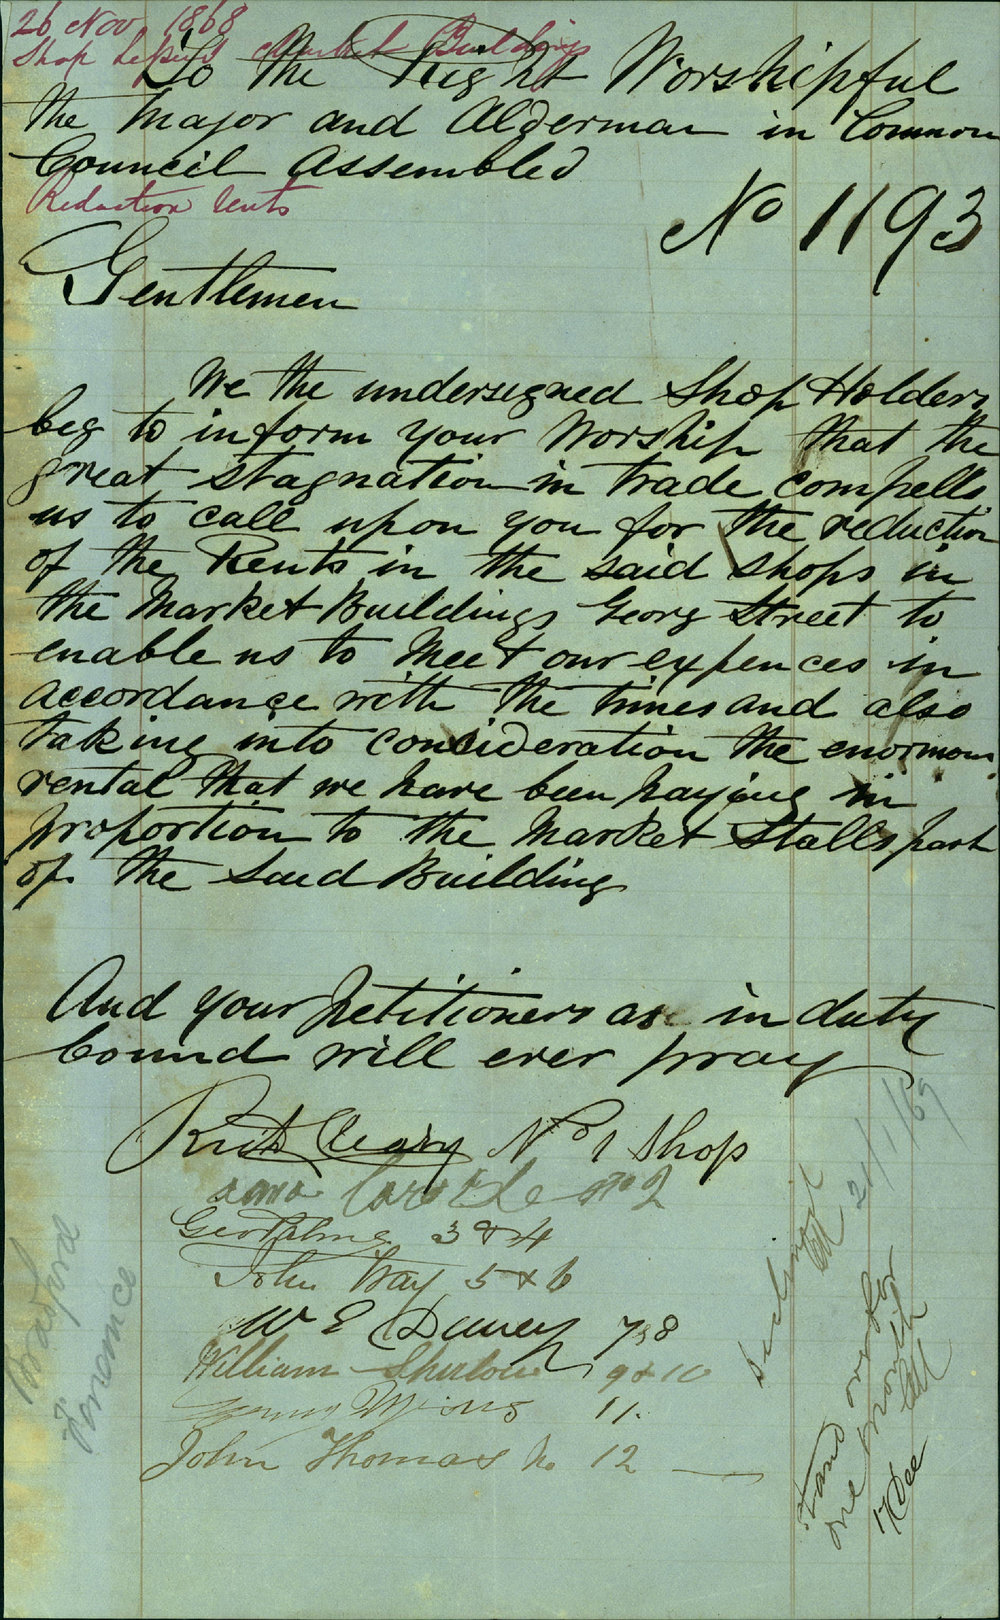 26 Nov 1868
Shop Market Buildings
To The Right Worshipful
The Major and Alderman in Common
Council Assembled
Reduction Rents
No 1193
Gentlemen
We the undersigned Shop Holders
beg to inform your Worship that the
great stagnation in trade compells
us to call upon you for the reduction
of the Rents in the said shops in
the Market Buildings Georg Street to
enable us to Meet our expences in
accordance with the times and also
taking into consideration the enormous
rental that we have been paying in
proportion to the Market Stalls part
of the Said Building
And your petitioners as in duty
bound will ever pray
No 1 Shop
no 2
Geo 3 & 4
John Way 5 & 6
W E Davey 7 & 8
William 9 & 10
11.
John Thomas No 12
Finance
declined
21/1/69
Stand over for
one month
17 Dec